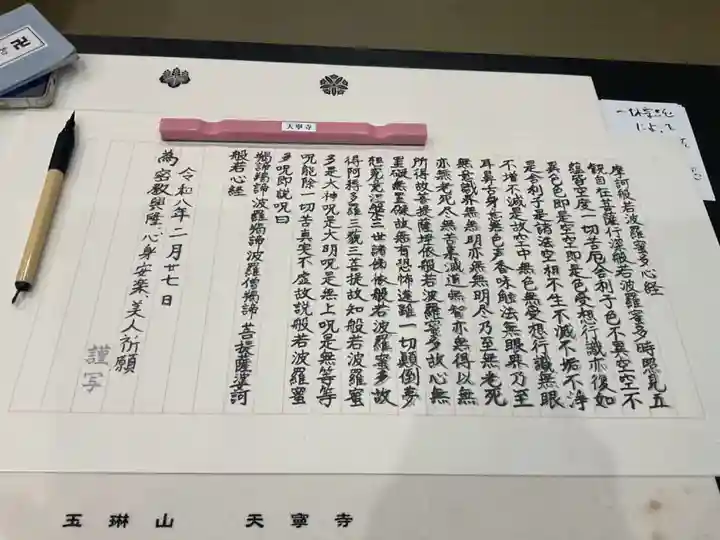 摩訶般若波羅蜜多心経
観自在菩薩行深般若波羅蜜多時照見五
蘊皆空度一切苦厄舎利子色不異空空不
異色色即是空空即是色受想行識亦復如
是舎利子是諸法空相不生不滅不垢不浄
不増不減是故空中無色無受想行識無眼
耳鼻舌身意無色声香味触法無眼界乃至
無意識界無無明亦無無明尽乃至無老死
亦無老死尽無苦集滅道無智亦無得以無
所得故菩提薩埵依般若波羅蜜多故心無
罣礙無罣礙故無有恐怖遠離一切顛倒夢
想究竟涅槃三世諸佛依般若波羅蜜多故
得阿耨多羅三藐三菩提故知般若波羅蜜
多是大神呪是大明呪是無上呪是無等等
呪能除一切苦真実不虚故説般若波羅蜜
多呪即説呪曰
羯諦羯諦波羅羯諦波羅僧羯諦 菩提薩婆訶
般若心経
令和八年二月廿七日
為密教興隆、心身安楽、美人祈願
謹写
天寧寺
卍
玉琳山 天寧寺